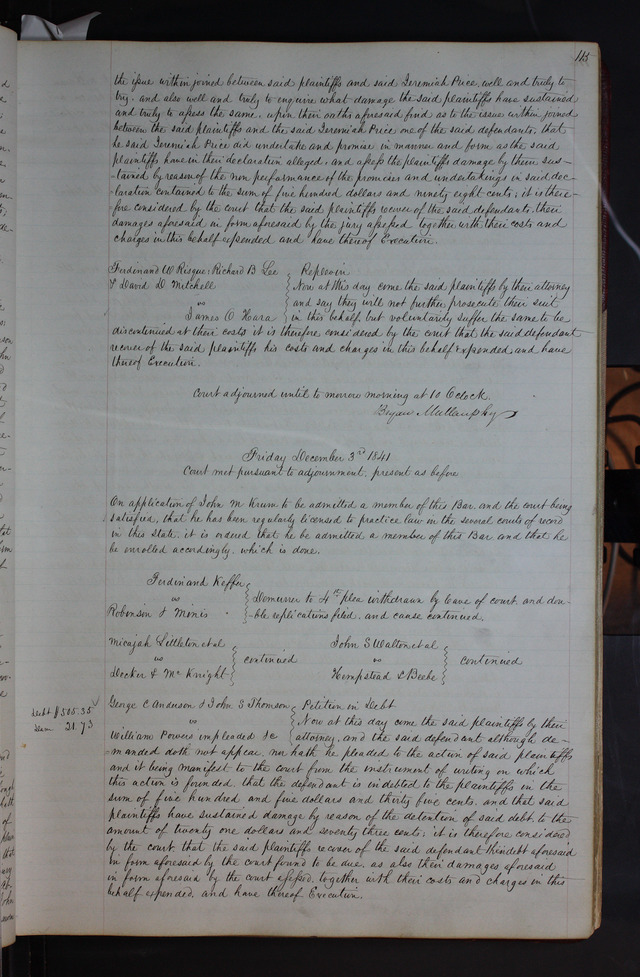 115
the issue within joined between said plaintiffs and said Jeremiah Price, well and truly to
try, and also well and truly to enquire what damage the said plaintiffs have sustained
and truly to assess the same. upon their oaths aforesaid find as to the issue within joined
between the said plaintiffs and the said Jeremiah Price one of the said defendants, that
he said Jeremiah Price did undertake and promise in manner and form as the said
plaintiffs have in their declaration alleged, and assess the plaintiffs damage by them sus-
tained by reason of the non performance of the promises and undertakings in said dec-
laration contained to the sum of five hundred dollars and ninety eight cents; it is there-
fore considered by the court that the said plaintiffs recover of the said defendants, their
damages aforesaid in form aforesaid by the jury assessed together with their costs and
charges in this behalf expended and have thereof Execution.
Ferdinand W Risque, Richard B Lee
& David D Mitchell
vs
James O Hara
Replevin
Now at this day come the said plaintiffs by their attorney
and say they will not further prosecute their suit
in this behalf, but voluntarily suffer the same to be
discontinued at their costs it is therefore considered by the court that the said defendant
recover of the said plaintiffs his costs and charges in this behalf expended and have
thereof Execution.
Court adjourned until to morrow morning at 10 Oclock.
Bryan Mullanphy
Friday December 3rd 1841
Court met pursuant to adjournment, present as before
On application of John M Krum to be admitted a member of this Bar, and the court being
satisfied, that he has been regularly licensed to practice law in the several courts of record
in this State, it is ordered that he be admitted a member of this Bar and that he
be enrolled accordingly, which is done.
Ferdinand Keffer
vs
Robinson & Minis
Demurrer to 4th plea withdrawn by leave of court, and dou-
-ble replications filed, and cause continued.
Micajah Littleton et al
vs
Docker & McKnight
continued
John S Walton et al
vs
Hempstead & Beebe
continued
Debt $505.35
Dam 21.73
George C Anderson & John S Thomson
vs
William Powers impleaded &c
Petition in Debt
Now at this day come the said plaintiffs by their
attorney, and the said defendant although de-
manded doth not appear, nor hath he pleaded to the action of said plaintiffs
and it being manifest to the court from the instrument of writing on which
this action is founded, that the defendant is indebted to the plaintiffs in the
sum of five hundred and five dollars and thirty five cents, and that said
plaintiffs have sustained damage by reason of the detention of said debt to the
amount of twenty one dollars and seventy three cents; it is therefore considered
by the court that the said plaintiffs recover of the said defendant their debt aforesaid
in form aforesaid by the court found to be due, as also their damages aforesaid
in form aforesaid by the court assessed, together with their costs and charges in this
behalf expended, and have thereof Execution.